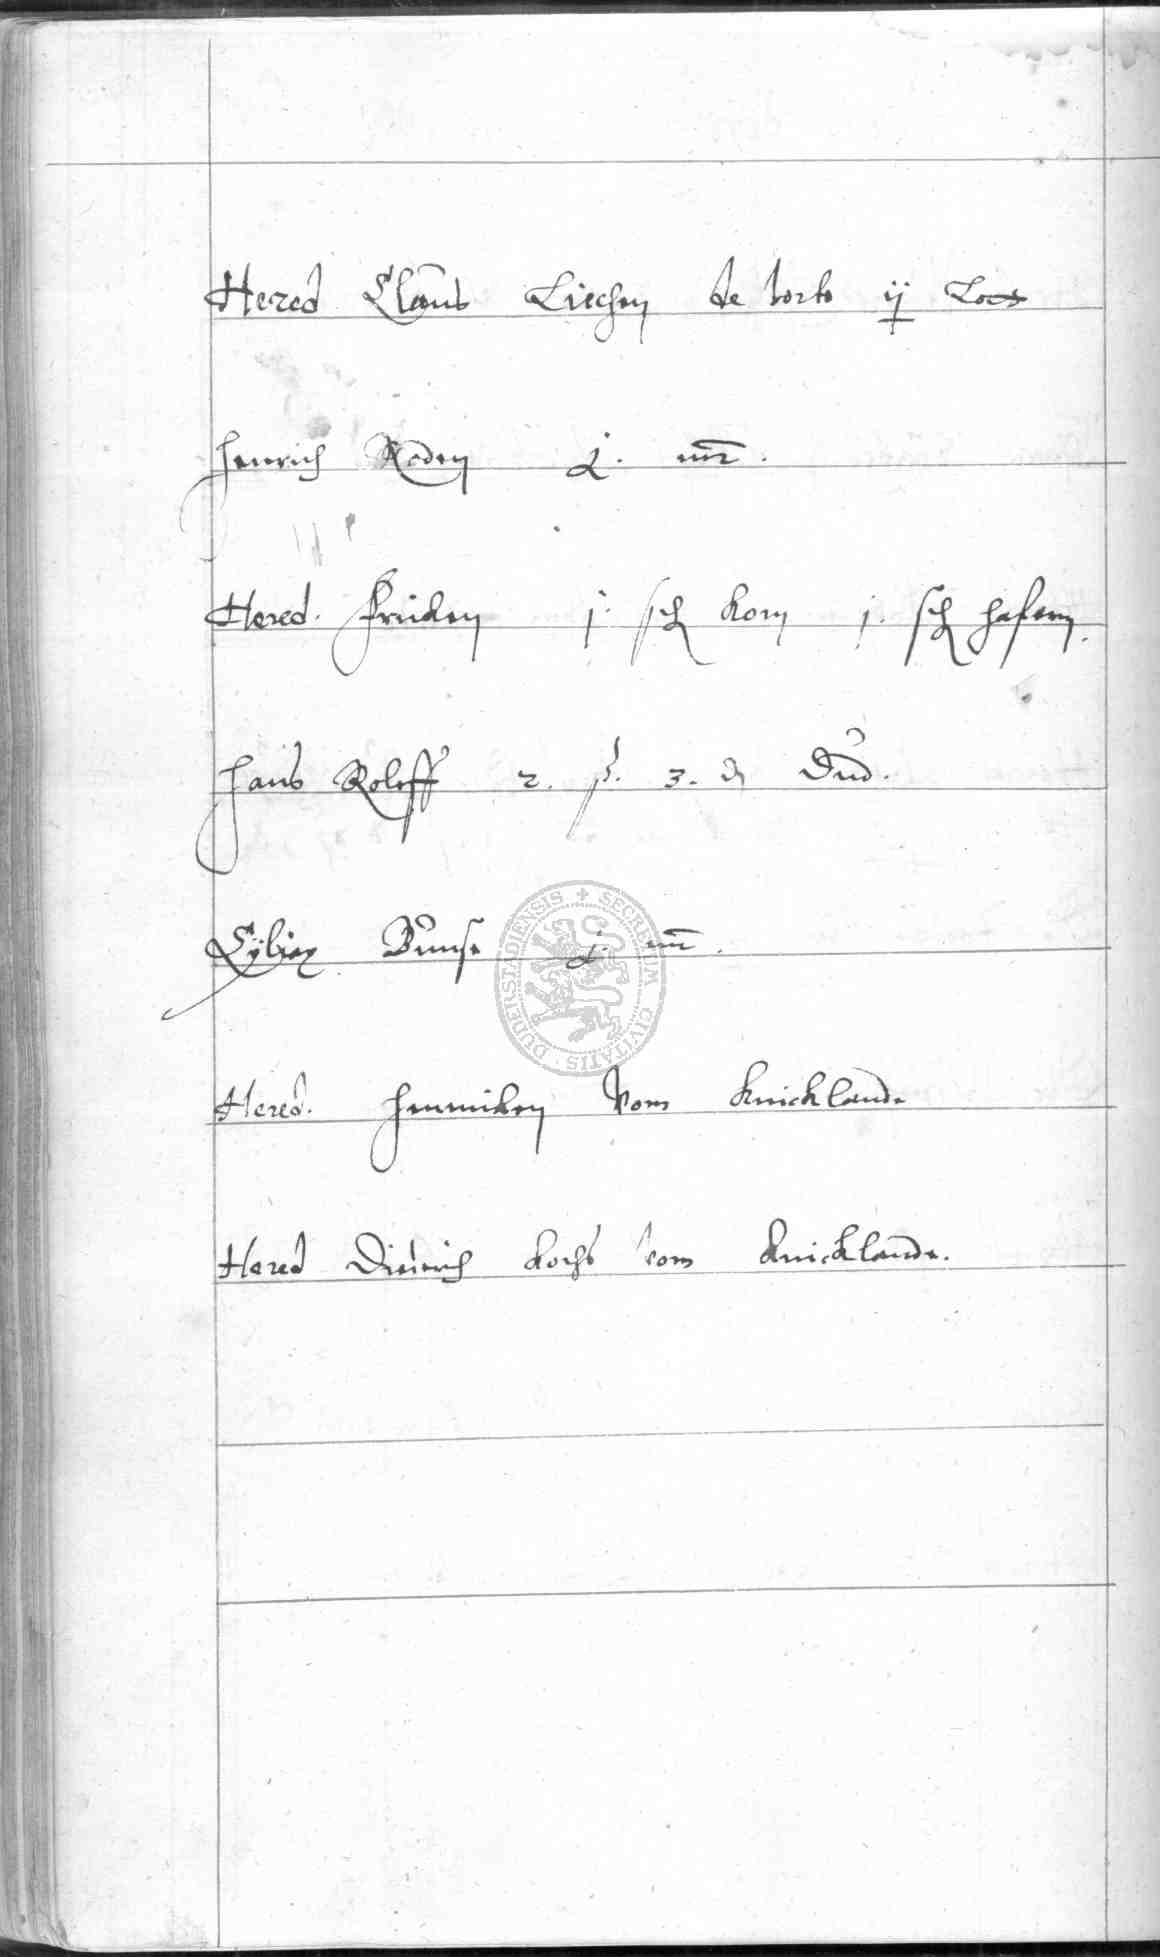 Hered Clauß Liechen de horto ij Loet
Henrich Roden j. mr.
Hered. Fricken j. sch korn j. sch hafern.
Hans Roloff 2. ß. 3. d Dud.
Cyliax Bunse j. mr.
Hered. Henniken vom knicklande
Hered Dieterich kochs vom knicklande.
SECRETUM CIVITATIS DUDERSTADIENSIS